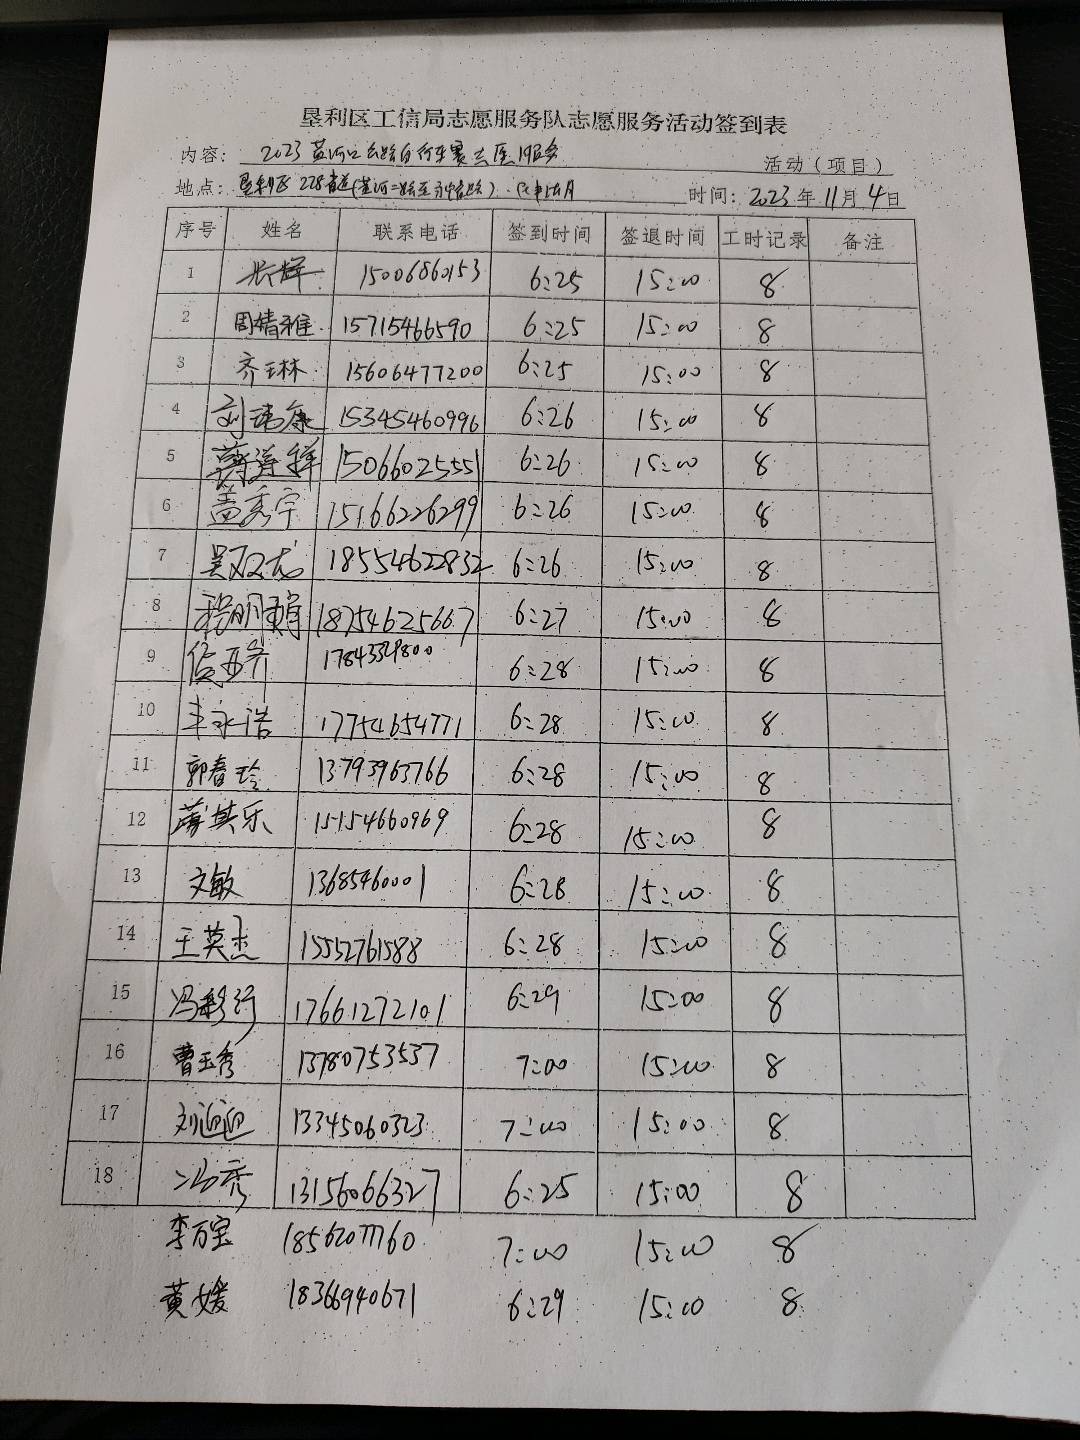 垦利区工信局志愿服务队志愿服务活动签到表
内容: 2023黄河口公路自行车赛志愿服务 活动（项目）
地点: 垦利区228省道 时间: 2023年11月4日
序号 姓名 联系电话 签到时间 签退时间 工时记录 备注
1 15006860153 6:25 15:00 8
2 周精雅 15715466590 6:25 15:00 8
3 齐玉林 15606477200 6:25 15:00 8
4 刘玮康 15345460996 6:26 15:00 8
5 15066025551 6:26 15:00 8
6 盖秀宇 15166226299 6:26 15:00 8
7 吴双龙 18554622832 6:26 15:00 8
8 程明娟 18754625667 6:27 15:00 8
9 6:28 15:00 8
10 李永浩 17754654771 6:28 15:00 8
11 郭春玲 13793963766 6:28 15:00 8
12 薄其乐 15154660969 6:28 15:00 8
13 文敏 13685460001 6:28 15:00 8
14 王英杰 15552761588 6:28 15:00 8
15 17661272101 6:29 15:00 8
16 曹玉秀 13780753537 7:00 15:00 8
17 刘迎迎 13345060323 7:00 15:00 8
18 冯秀 13156066327 6:25 15:00 8
李万宝 18562077760 7:00 15:00 8
黄媛 18366940671 6:29 15:00 8